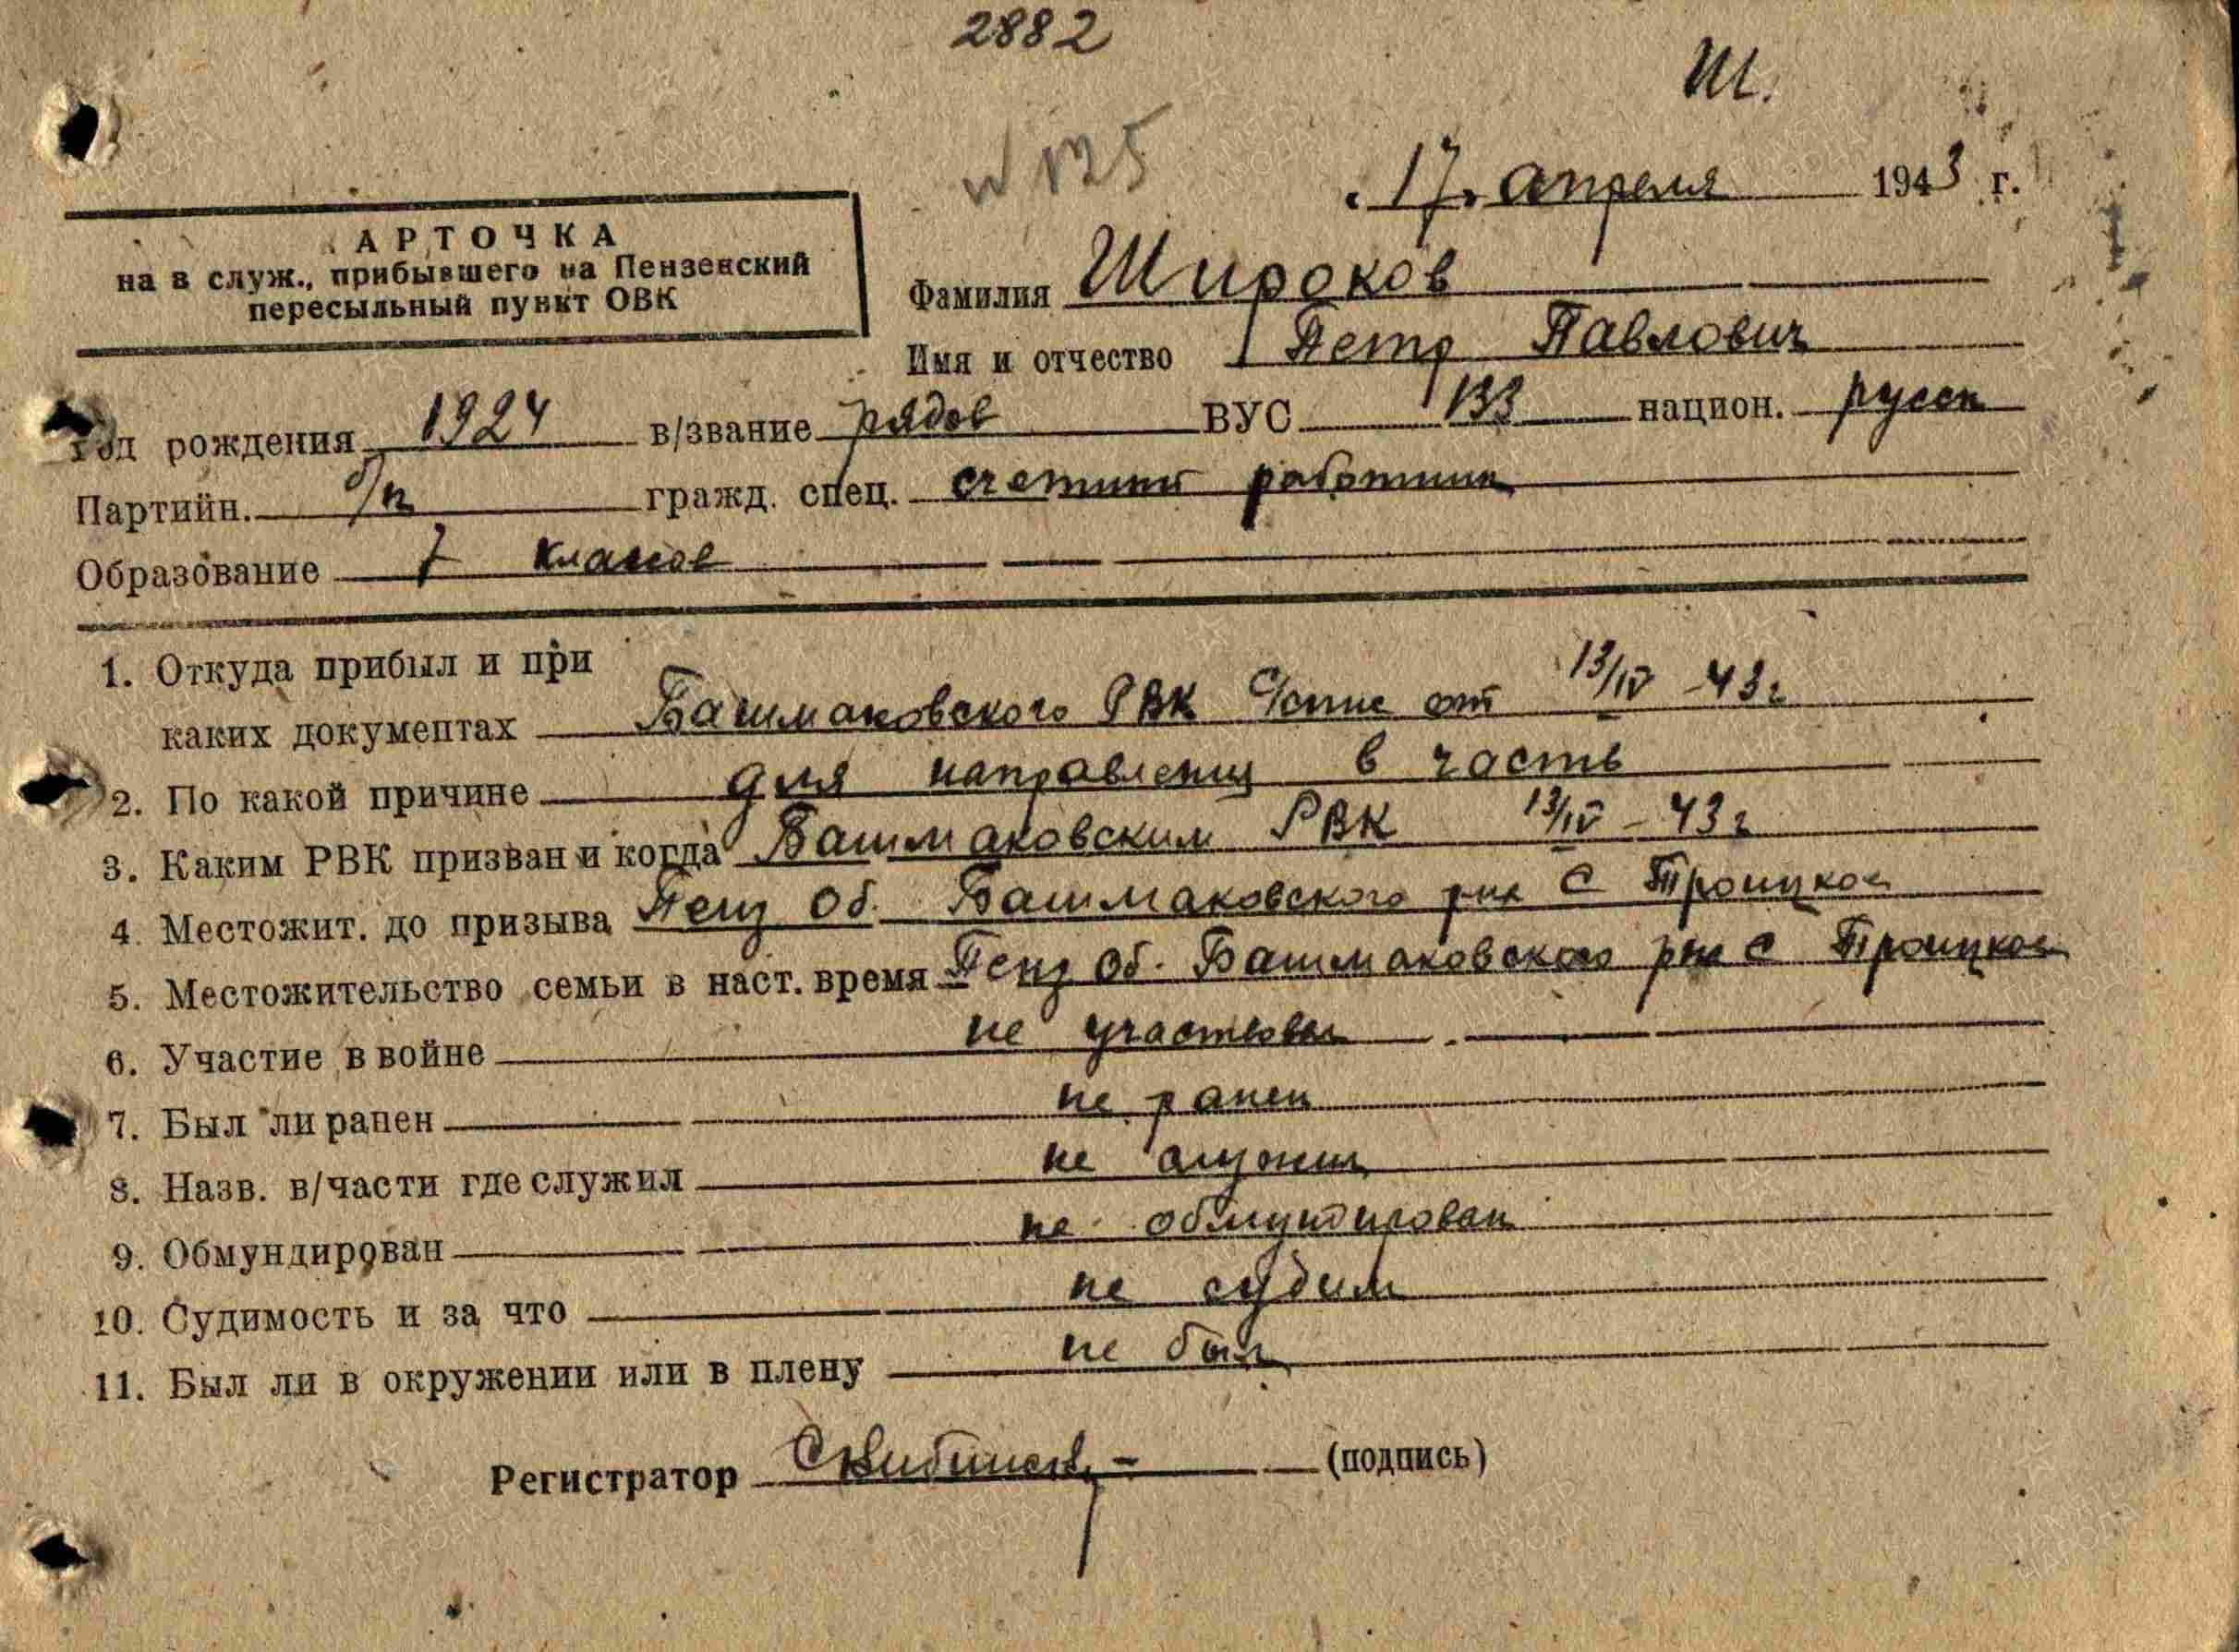 2882
Ш.
N 135
"17" апреля 1943 г.
АРТОЧКА
на в служ., прибывшего на Пензенский
пересыльный пункт ОВК
Фамилия Широков
Имя и отчество Петр Павлович
Год рождения 1924 в/звание рядов ВУС 133 национ. русск
Партийн. б/п гражд. спец. счетный работник
Образование 7 классов
1. Откуда прибыл и при
каких документах Башмаковского РВК с/спис от 13/IV - 43 г
2. По какой причине для направления в часть
3. Каким РВК призван и когда Башмаковским РВК 13/IV - 43 г
4. Местожит. до призыва Пенз Об. Башмаковского р-на С Троицкое
5. Местожительство семьи в наст. время Пенз Об. Башмаковского р-на С Троицкое
6. Участие в войне не участвовал
7. Был ли ранен не ранен
8. Назв. в/части где служил не служил
9. Обмундирован не обмундирован
10. Судимость и за что не судим
11. Был ли в окружении или в плену не был
Регистратор (подпись)